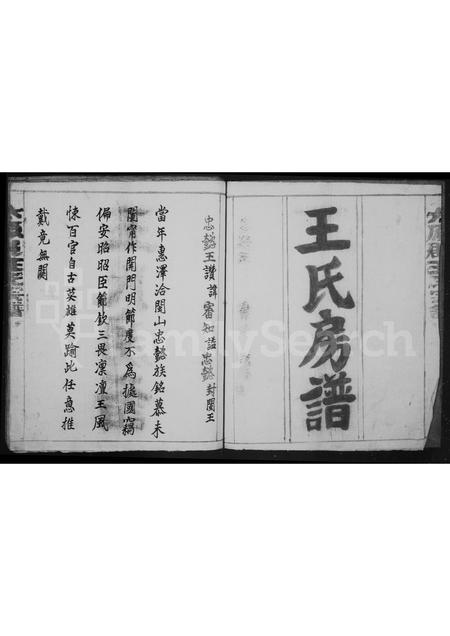 王氏房譜
忠懿王讚諱審知諡忠懿封閩王
當年惠澤洽閩山忠懿族銘慕未
閩甯作開門明節度不為據國竊
偏安昭昭臣節欽三畏凜凜王風
悚百官自古英雄莫踰此任意推
戴竟無關
FamilySearch